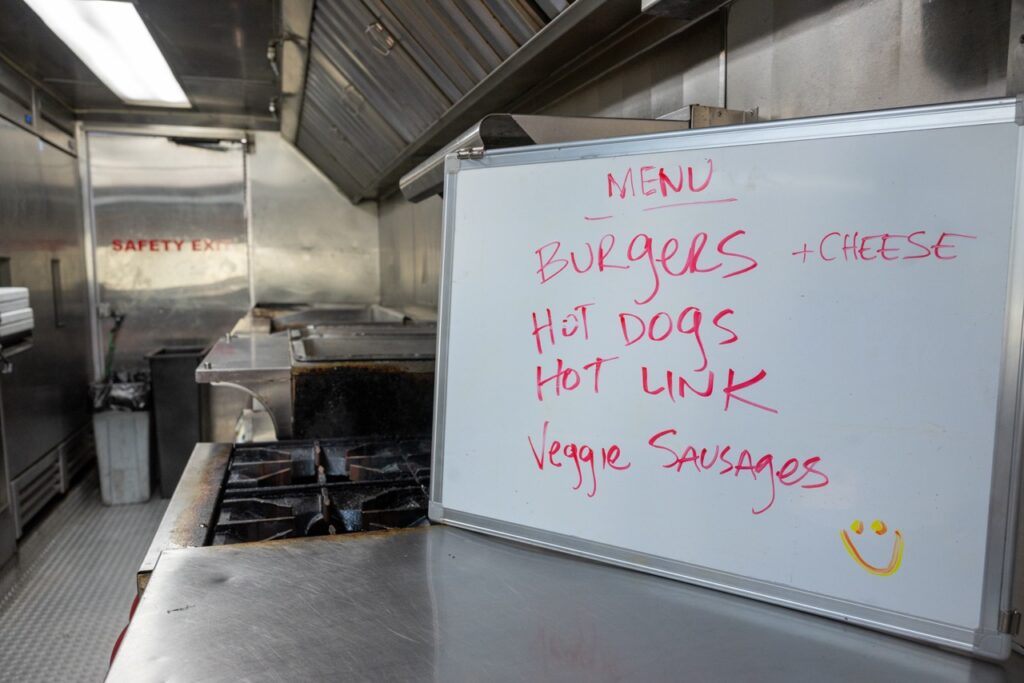 MENU
BURgERS + CHEESE
HOT DOgS
HOT LINK
Veggie SAUSAges
SAFETY EXIT